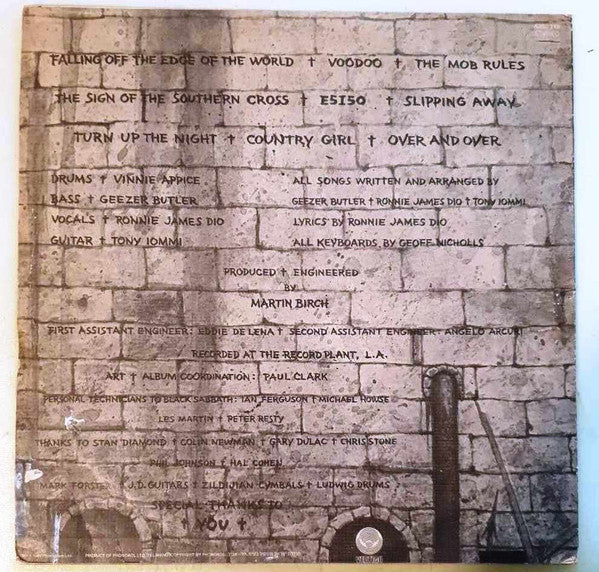 FALLING OFF THE EDGE OF THE WORLD † VOODOO † THE MOB RULES
THE SIGN OF THE SOUTHERN CROSS † E5150 † SLIPPING AWAY
TURN UP THE NIGHT † COUNTRY GIRL † OVER AND OVER
DRUMS † VINNIE APPICE
BASS † GEEZER BUTLER
VOCALS † RONNIE JAMES DIO
GUITAR † TONY IOMMI
ALL SONGS WRITTEN AND ARRANGED BY
GEEZER BUTLER † RONNIE JAMES DIO † TONY IOMMI
LYRICS BY RONNIE JAMES DIO
ALL KEYBOARDS BY GEOFF NICHOLLS
PRODUCED † ENGINEERED
BY
MARTIN BIRCH
FIRST ASSISTANT ENGINEER: EDDIE DE LENA † SECOND ASSISTANT ENGINEER: ANGELO ARCURI
RECORDED AT THE RECORD PLANT, L.A.
ART † ALBUM COORDINATION: PAUL CLARK
PERSONAL TECHNICIANS TO BLACK SABBATH: IAN FERGUSON † MICHAEL HOWSE
LES MARTIN † PETER RESTY
THANKS TO STAN DIAMOND † COLIN NEWMAN † GARY DULAC † CHRIS STONE
PHIL JOHNSON † HAL COHEN
MARK FORSTER † J.D. GUITARS † ZILDJIAN CYMBALS † LUDWIG DRUMS
SPECIAL THANKS TO
† YOU †
VERTIGO